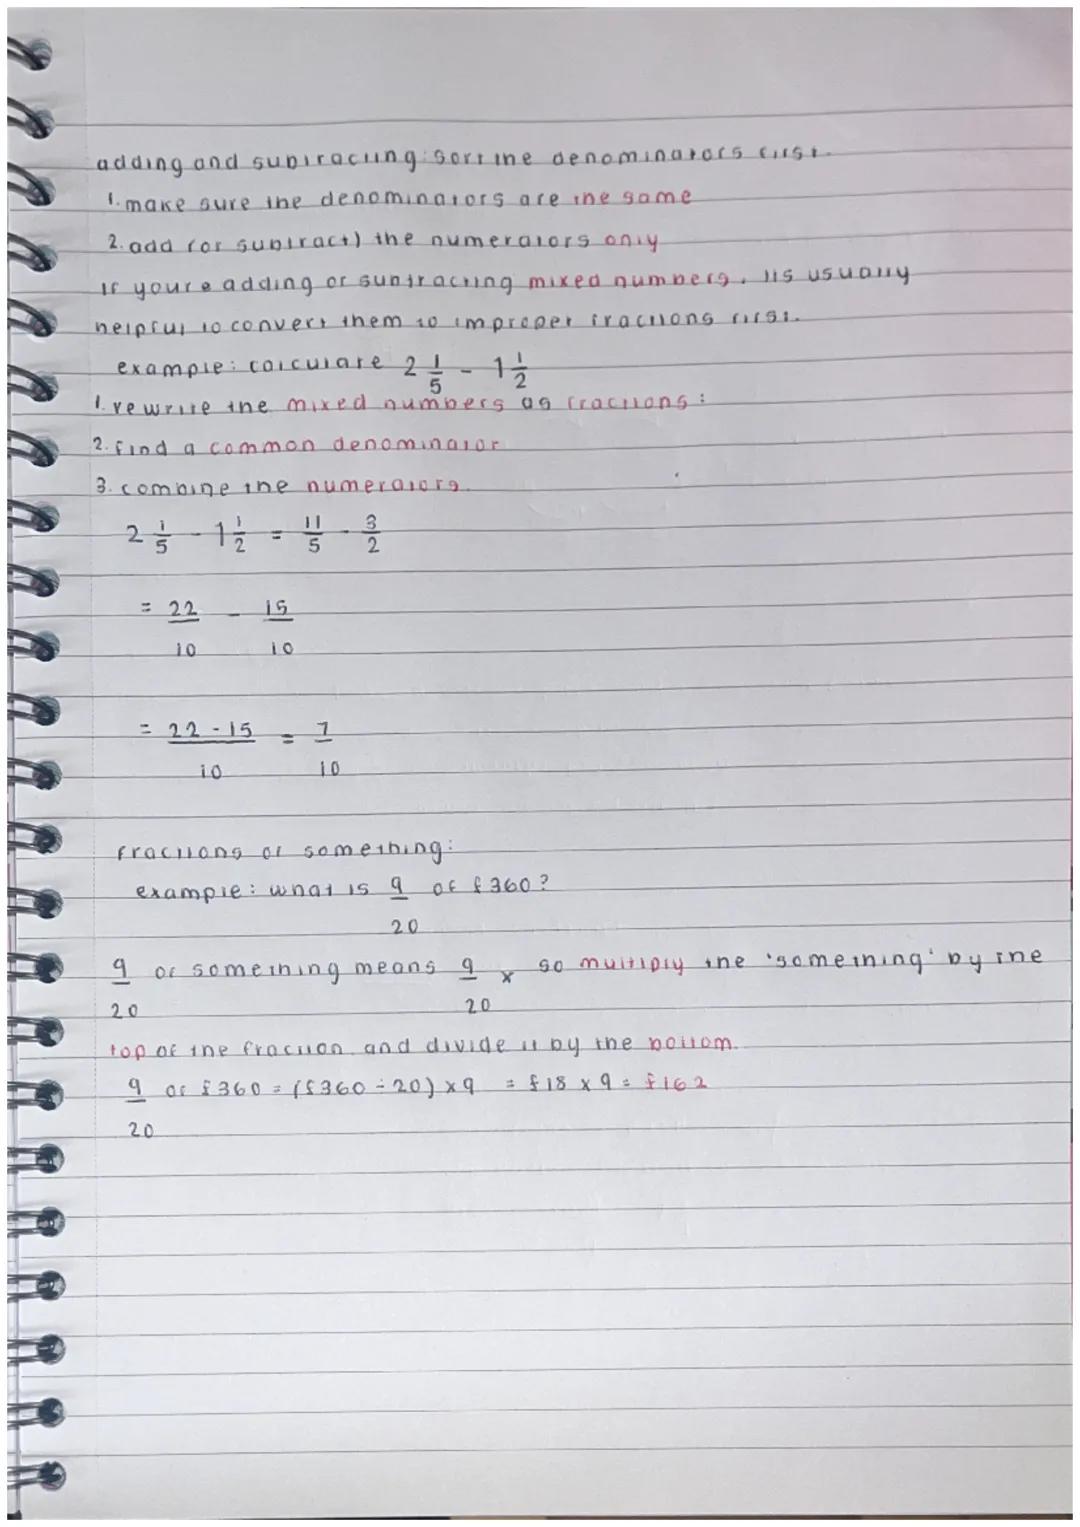 adding and subtracting: sort the denominators first.
1. make sure the denominators are the same
2. add (or subtract) the numerators only
if youre adding or subtracting mixed numbers, its usually
helpful to convert them to improper fractions first.
example: calculate 2 1/5 - 1 1/2
1. rewrite the mixed numbers as fractions:
2. find a common denominator
3. combine the numerators.
2 1/5 - 1 1/2 = 11/5 - 3/2
= 22/10 - 15/10
= 22 - 15/10 = 7/10
fractions of something:
example: what is 9/20 of £360?
9/20 of something means 9/20 × so multiply the 'something' by the
top of the fraction, and divide it by the bottom.
9/20 of £360 = (£360 ÷ 20) × 9 = £18 × 9 = £162